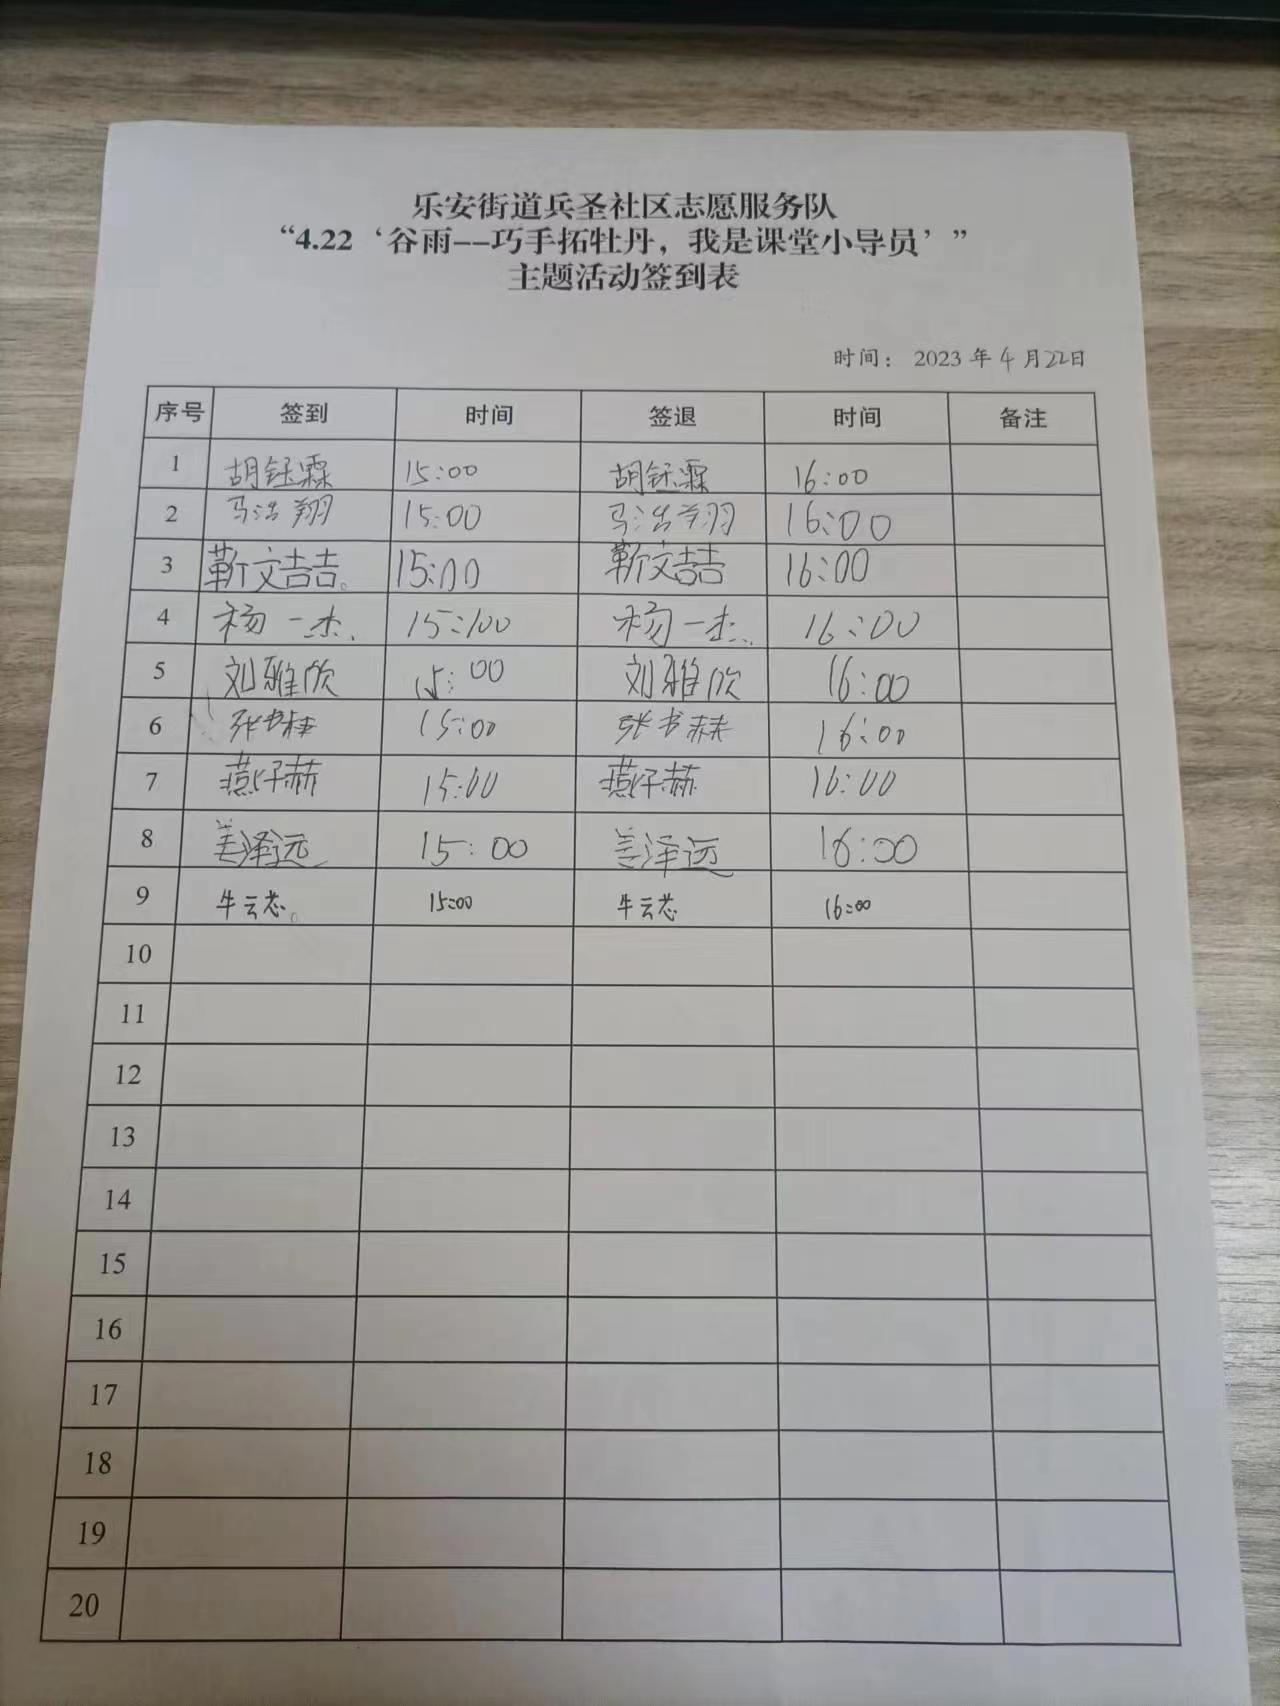 乐安街道兵圣社区志愿服务队
“4.22‘谷雨--巧手拓牡丹，我是课堂小导员’”
主题活动签到表
时间： 2023 年 4 月 22日
序号 签到 时间 签退 时间 备注
1 胡钰霖 15:00 胡钰霖 16:00
2 马浩翔 15:00 马浩翔 16:00
3 靳文喆 15:00 靳文喆 16:00
4 杨一杰 15:00 杨一杰 16:00
5 刘雅欣 15:00 刘雅欣 16:00
6 张书赫 15:00 张书赫 16:00
7 燕仔赫 15:00 燕仔赫 16:00
8 姜泽远 15:00 姜泽远 16:00
9 牛云芯 15:00 牛云芯 16:00
10
11
12
13
14
15
16
17
18
19
20